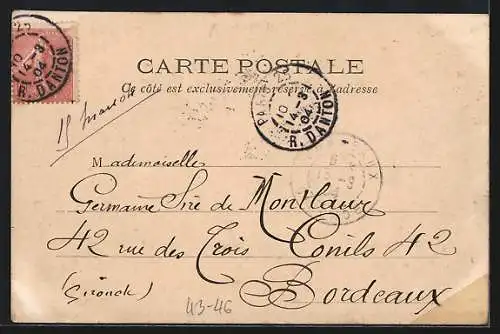 CARTE POSTALE
Ce côté est exclusivement réservé à l'adresse
PARIS
10
14-3
04
R. DANTON
10
14-3
04
R. DANTON
Mademoiselle
Germaine de Montlaur
42 rue des Trois Conils 42
Bordeaux
(Gironde)
43-46